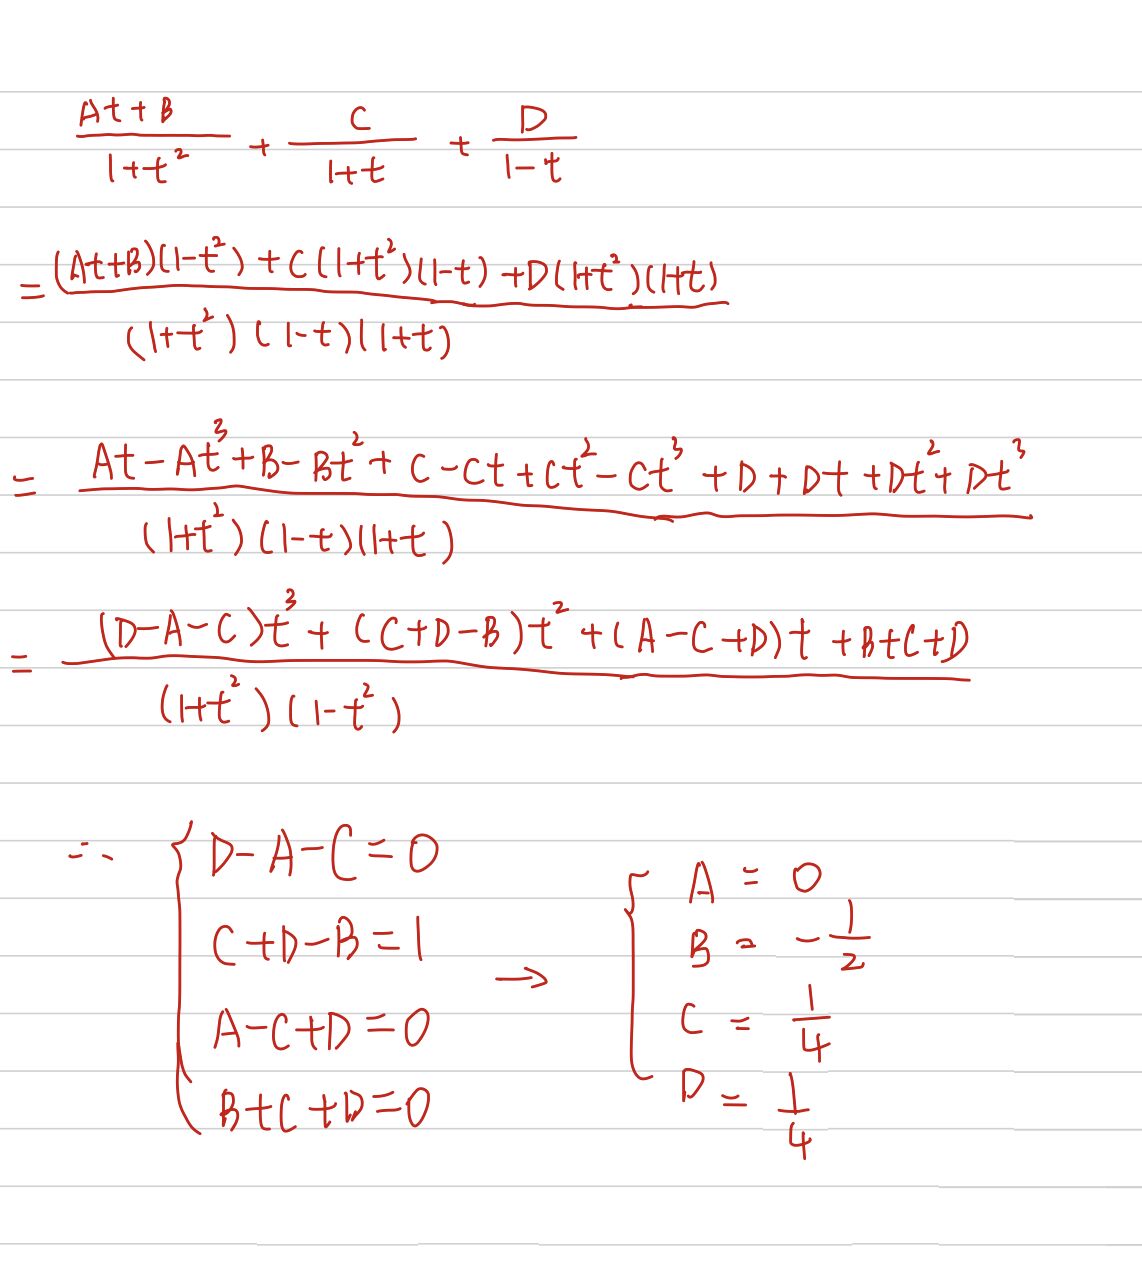 \frac{At+B}{1+t^2} + \frac{C}{1+t} + \frac{D}{1-t}
= \frac{(At+B)(1-t^2)+C(1+t^2)(1-t)+D(1+t^2)(1+t)}{(1+t^2)(1-t)(1+t)}
= \frac{At-At^3+B-Bt^2+C-Ct+Ct^2-Ct^3+D+Dt+Dt^2+Dt^3}{(1+t^2)(1-t)(1+t)}
= \frac{(D-A-C)t^3+(C+D-B)t^2+(A-C+D)t+B+C+D}{(1+t^2)(1-t^2)}
∴ { D-A-C=0
C+D-B=1
A-C+D=0
B+C+D=0
→ { A = 0
B = -\frac{1}{2}
C = \frac{1}{4}
D = \frac{1}{4}